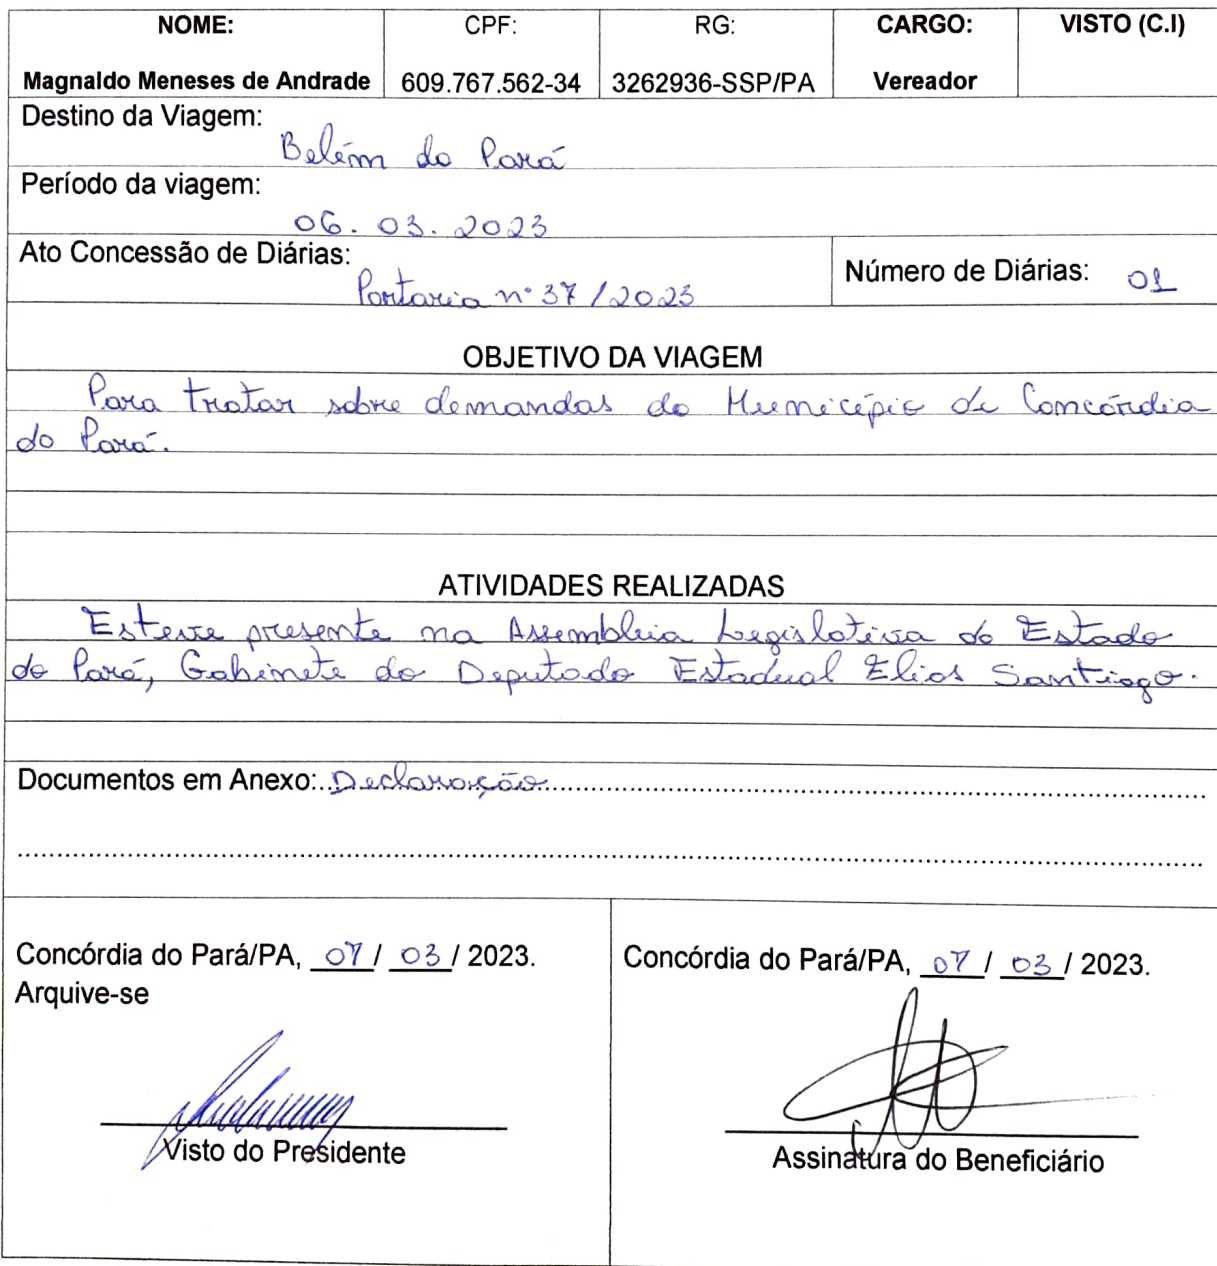 NOME: CPF: RG: CARGO: VISTO (C.I)
Magnaldo Meneses de Andrade 609.767.562-34 3262936-SSP/PA Vereador
Destino da Viagem:
Belém do Pará
Período da viagem:
06. 03. 2023
Ato Concessão de Diárias:
Portaria nº 37 / 2023
Número de Diárias: 01
OBJETIVO DA VIAGEM
Para tratar sobre demandas do Município de Concórdia
do Pará.
ATIVIDADES REALIZADAS
Esteve presente na Assembleia Legislativa do Estado
do Pará, Gabinete do Deputado Estadual Elias Santiago.
Documentos em Anexo: Declaração
Concórdia do Pará/PA, 07 / 03 / 2023.
Arquive-se
Visto do Presidente
Concórdia do Pará/PA, 07 / 03 / 2023.
Assinatura do Beneficiário